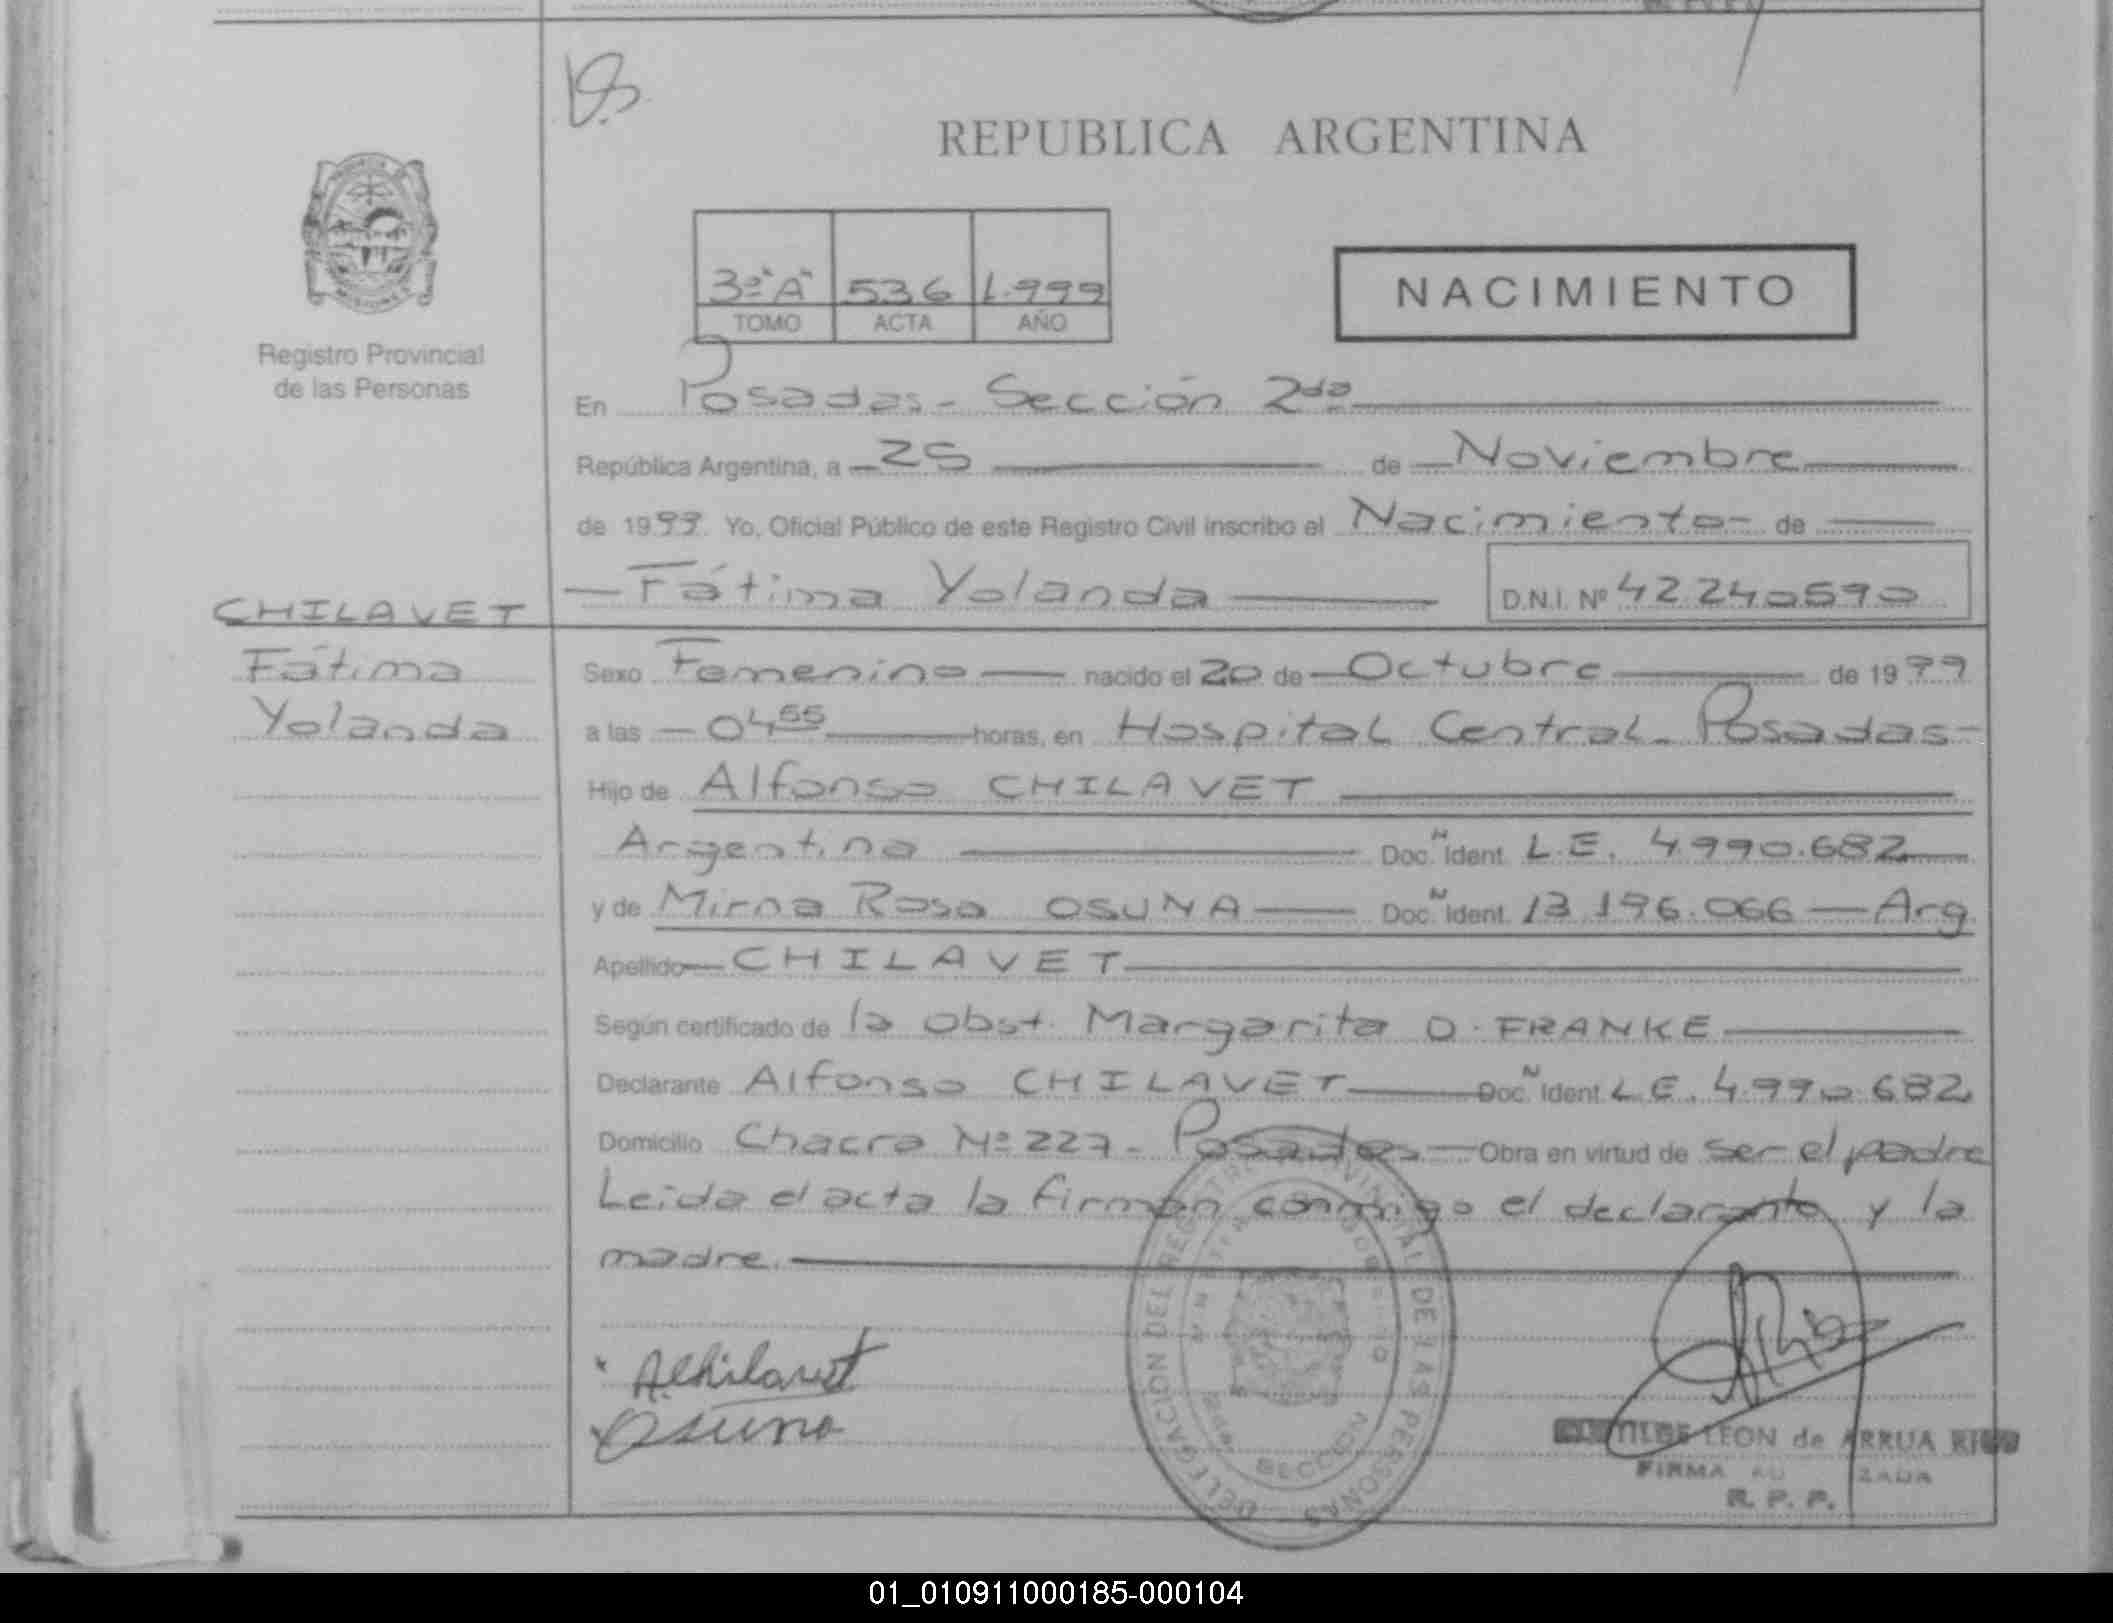 REPUBLICA ARGENTINA
3º "A" 536 1.999
TOMO ACTA AÑO
NACIMIENTO
Registro Provincial
de las Personas
En Posadas - Sección 2da
República Argentina, a 25 de Noviembre
de 1999. Yo, Oficial Público de este Registro Civil inscribo el Nacimiento de
Fátima Yolanda D.N.I. Nº 42240590
CHILAVET
Fátima
Yolanda
Sexo Femenino nacido el 20 de Octubre de 1999
a las 04 55 horas, en Hospital Central - Posadas-
Hijo de Alfonso CHILAVET
Argentino Doc. N Ident. L.E. 4.990.682
y de Mirna Rosa OSUNA Doc. N Ident. 13.196.066 — Arg
Apellido CHILAVET
Según certificado de la obst. Margarita O. FRANKE
Declarante Alfonso CHILAVET Doc. N Ident. L.E. 4.990.682
Domicilio Chacra Nº 227 - Posadas Obra en virtud de ser el padre
Leida el acta la firman conmigo el declarante y la
madre.
AChilavet
Osuna
DELEGACION DEL REGISTRO PROVINCIAL DE LAS PERSONAS
SECCION
LEON de ARRUA
FIRMA
R. P. P.
01_010911000185-000104